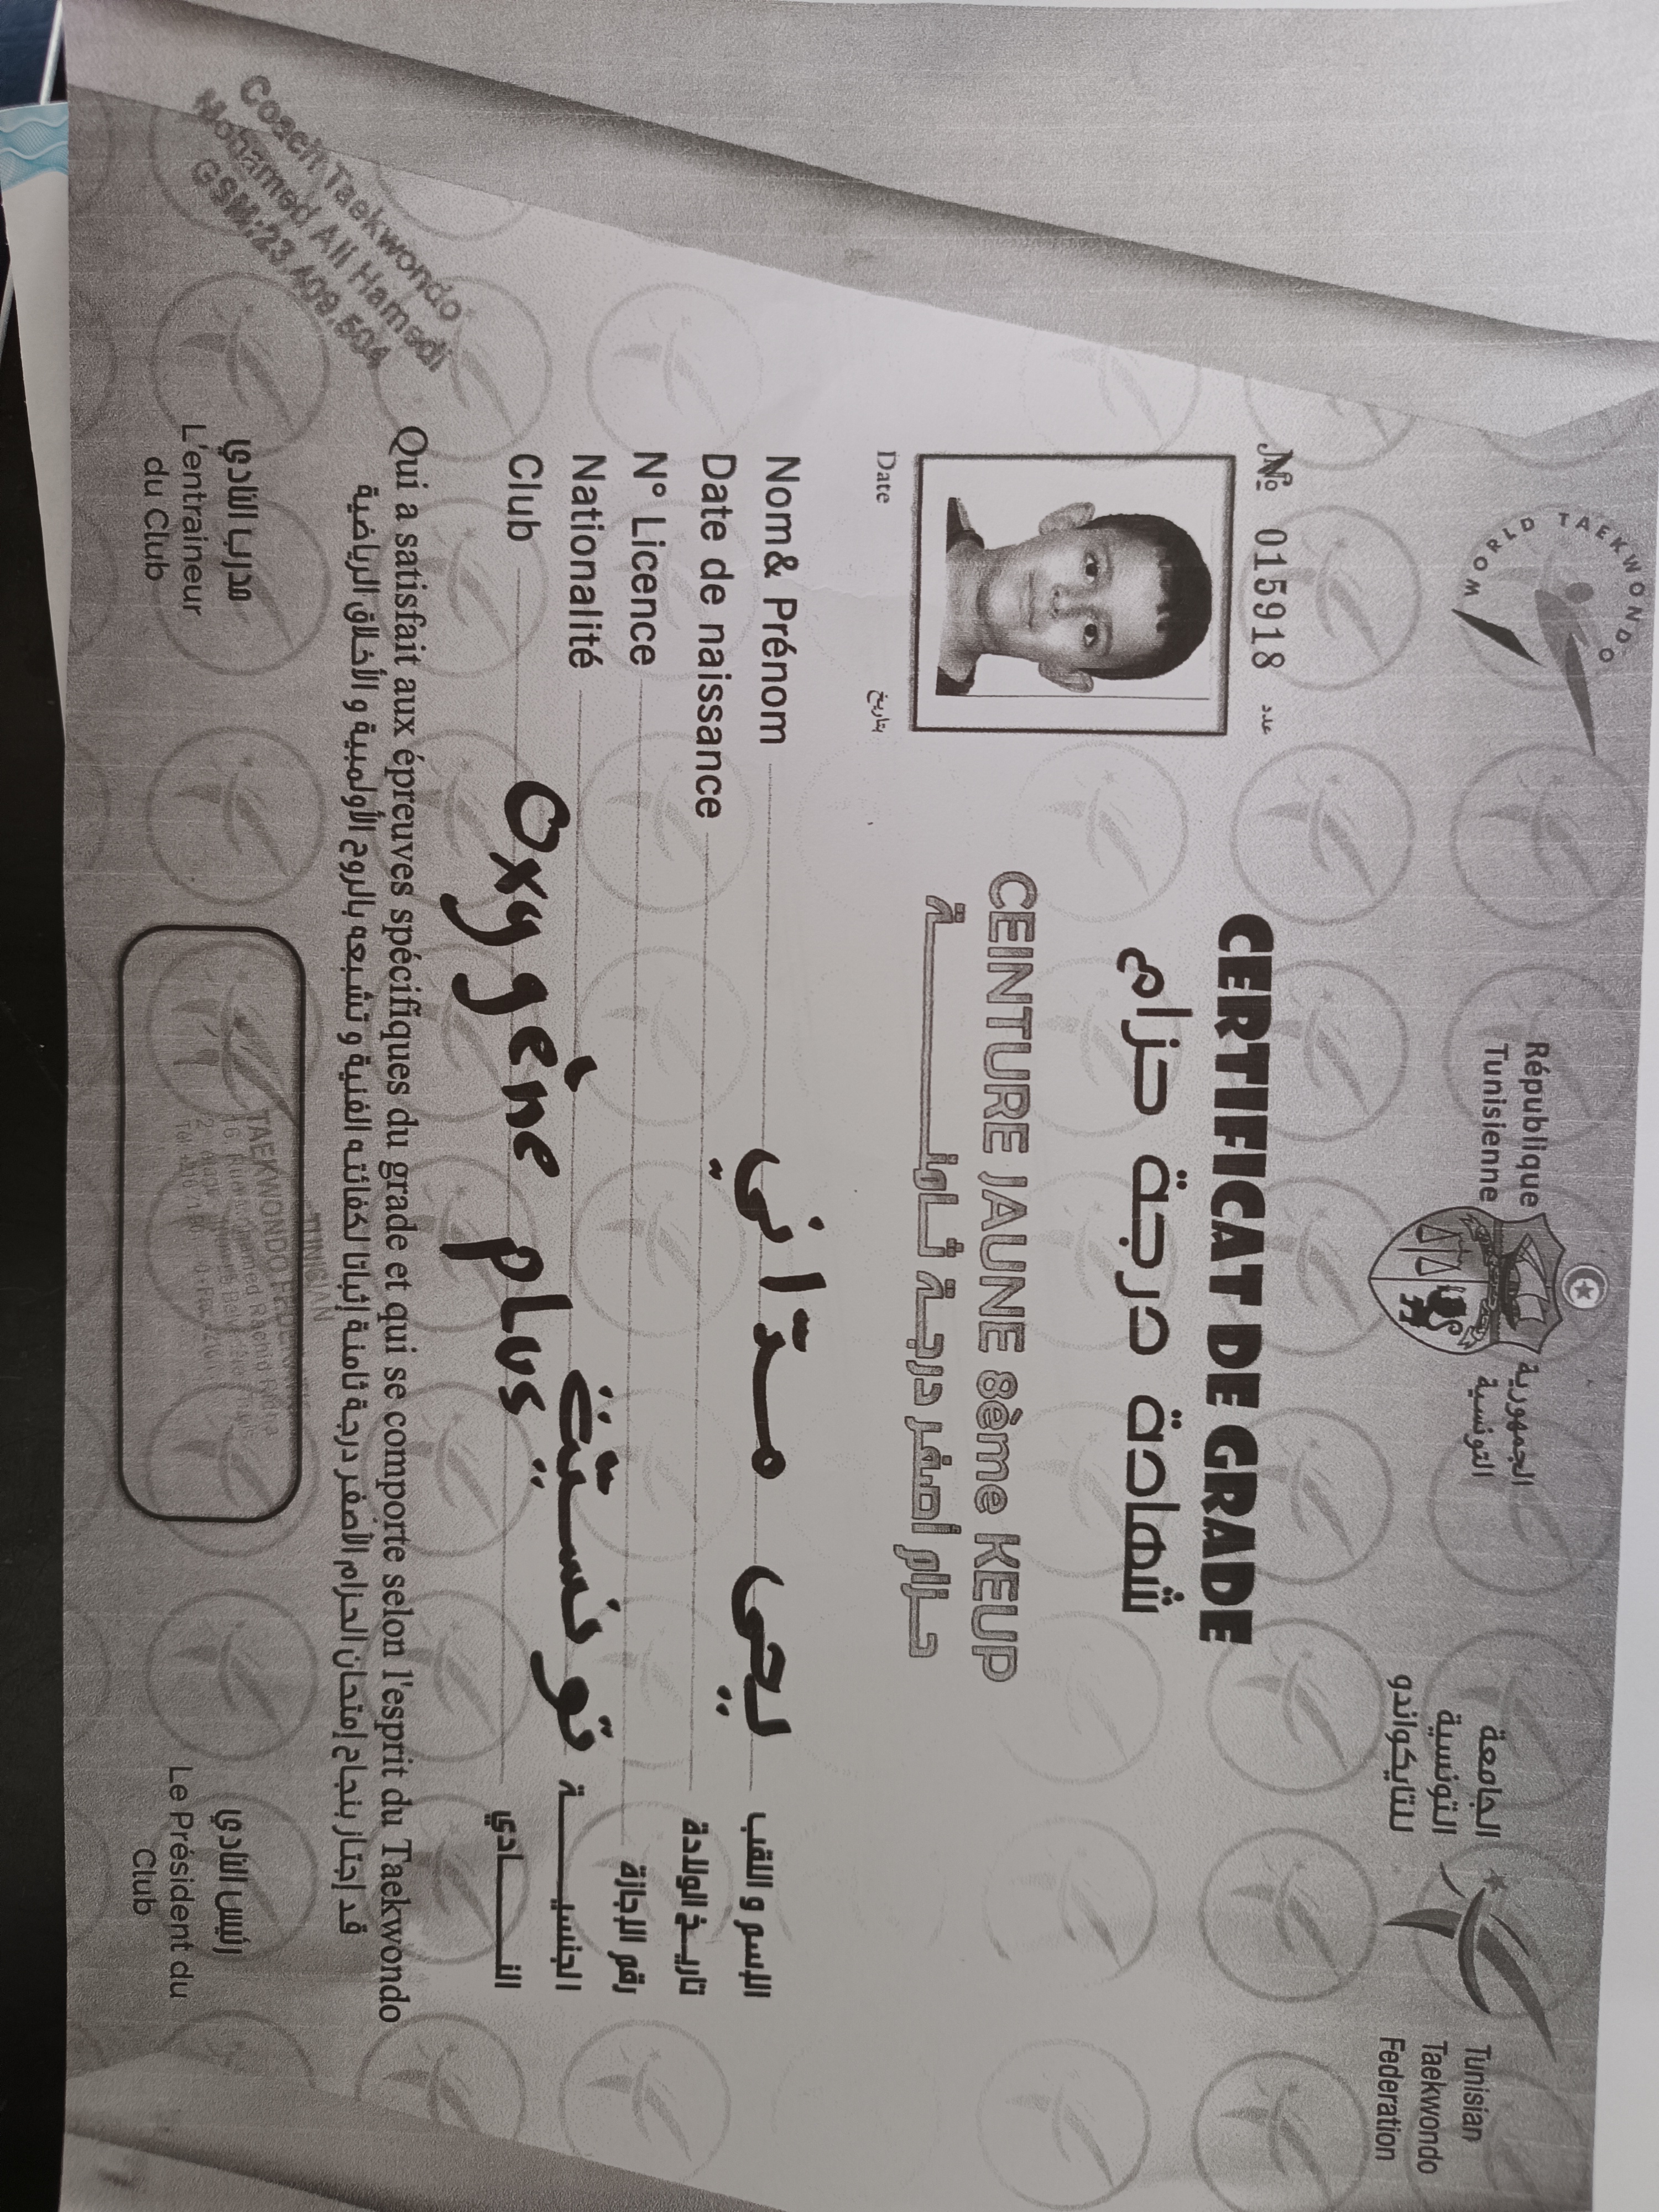 WORLD TAEKWONDO
République
Tunisienne
الجمهورية
التونسية
الجامعة
التونسية
للتايكواندو
Tunisian
Taekwondo
Federation
№ 015918 عدد
CERTIFICAT DE GRADE
شهادة درجة حزام
CEINTURE JAUNE 8ème KEUP
حزام أصفر درجة ثامنة
Date تاريخ
Nom& Prénom يحيى مدّاني الإسم و اللقب
Date de naissance تاريخ الولادة
N° Licence رقم الإجازة
Nationalité تونسيّة الجنسية
Club Oxygène plus النادي
Qui a satisfait aux épreuves spécifiques du grade et qui se comporte selon l'esprit du Taekwondo
قد إجتاز بنجاح إمتحان الحزام الأصفر درجة ثامنة إثباتا لكفائته الفنية و تشبعه بالروح الأولمبية و الأخلاق الرياضية
مدرب النادي
L'entraineur
du Club
رئيس النادي
Le Président du
Club
Coach Taekwondo
Mohamed Ali Hamedi
GSM:23.409.504
TUNISIAN
TAEKWONDO